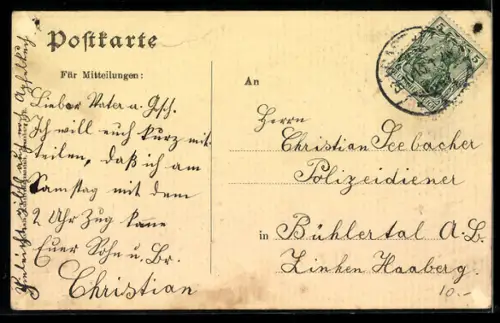 Postkarte
Für Mitteilungen:
Lieber Vater u. Gsch.
Ich will euch kurz mit
teilen, daß ich am
Samstag mit dem
2 Uhr Zug kane
Euer Sohn u. Br.
Christian
An
Herrn
Christian Seebacher
Polizeidiener
in Bühlertal A. B.
Zinken Haaberg.
10.-
5 5